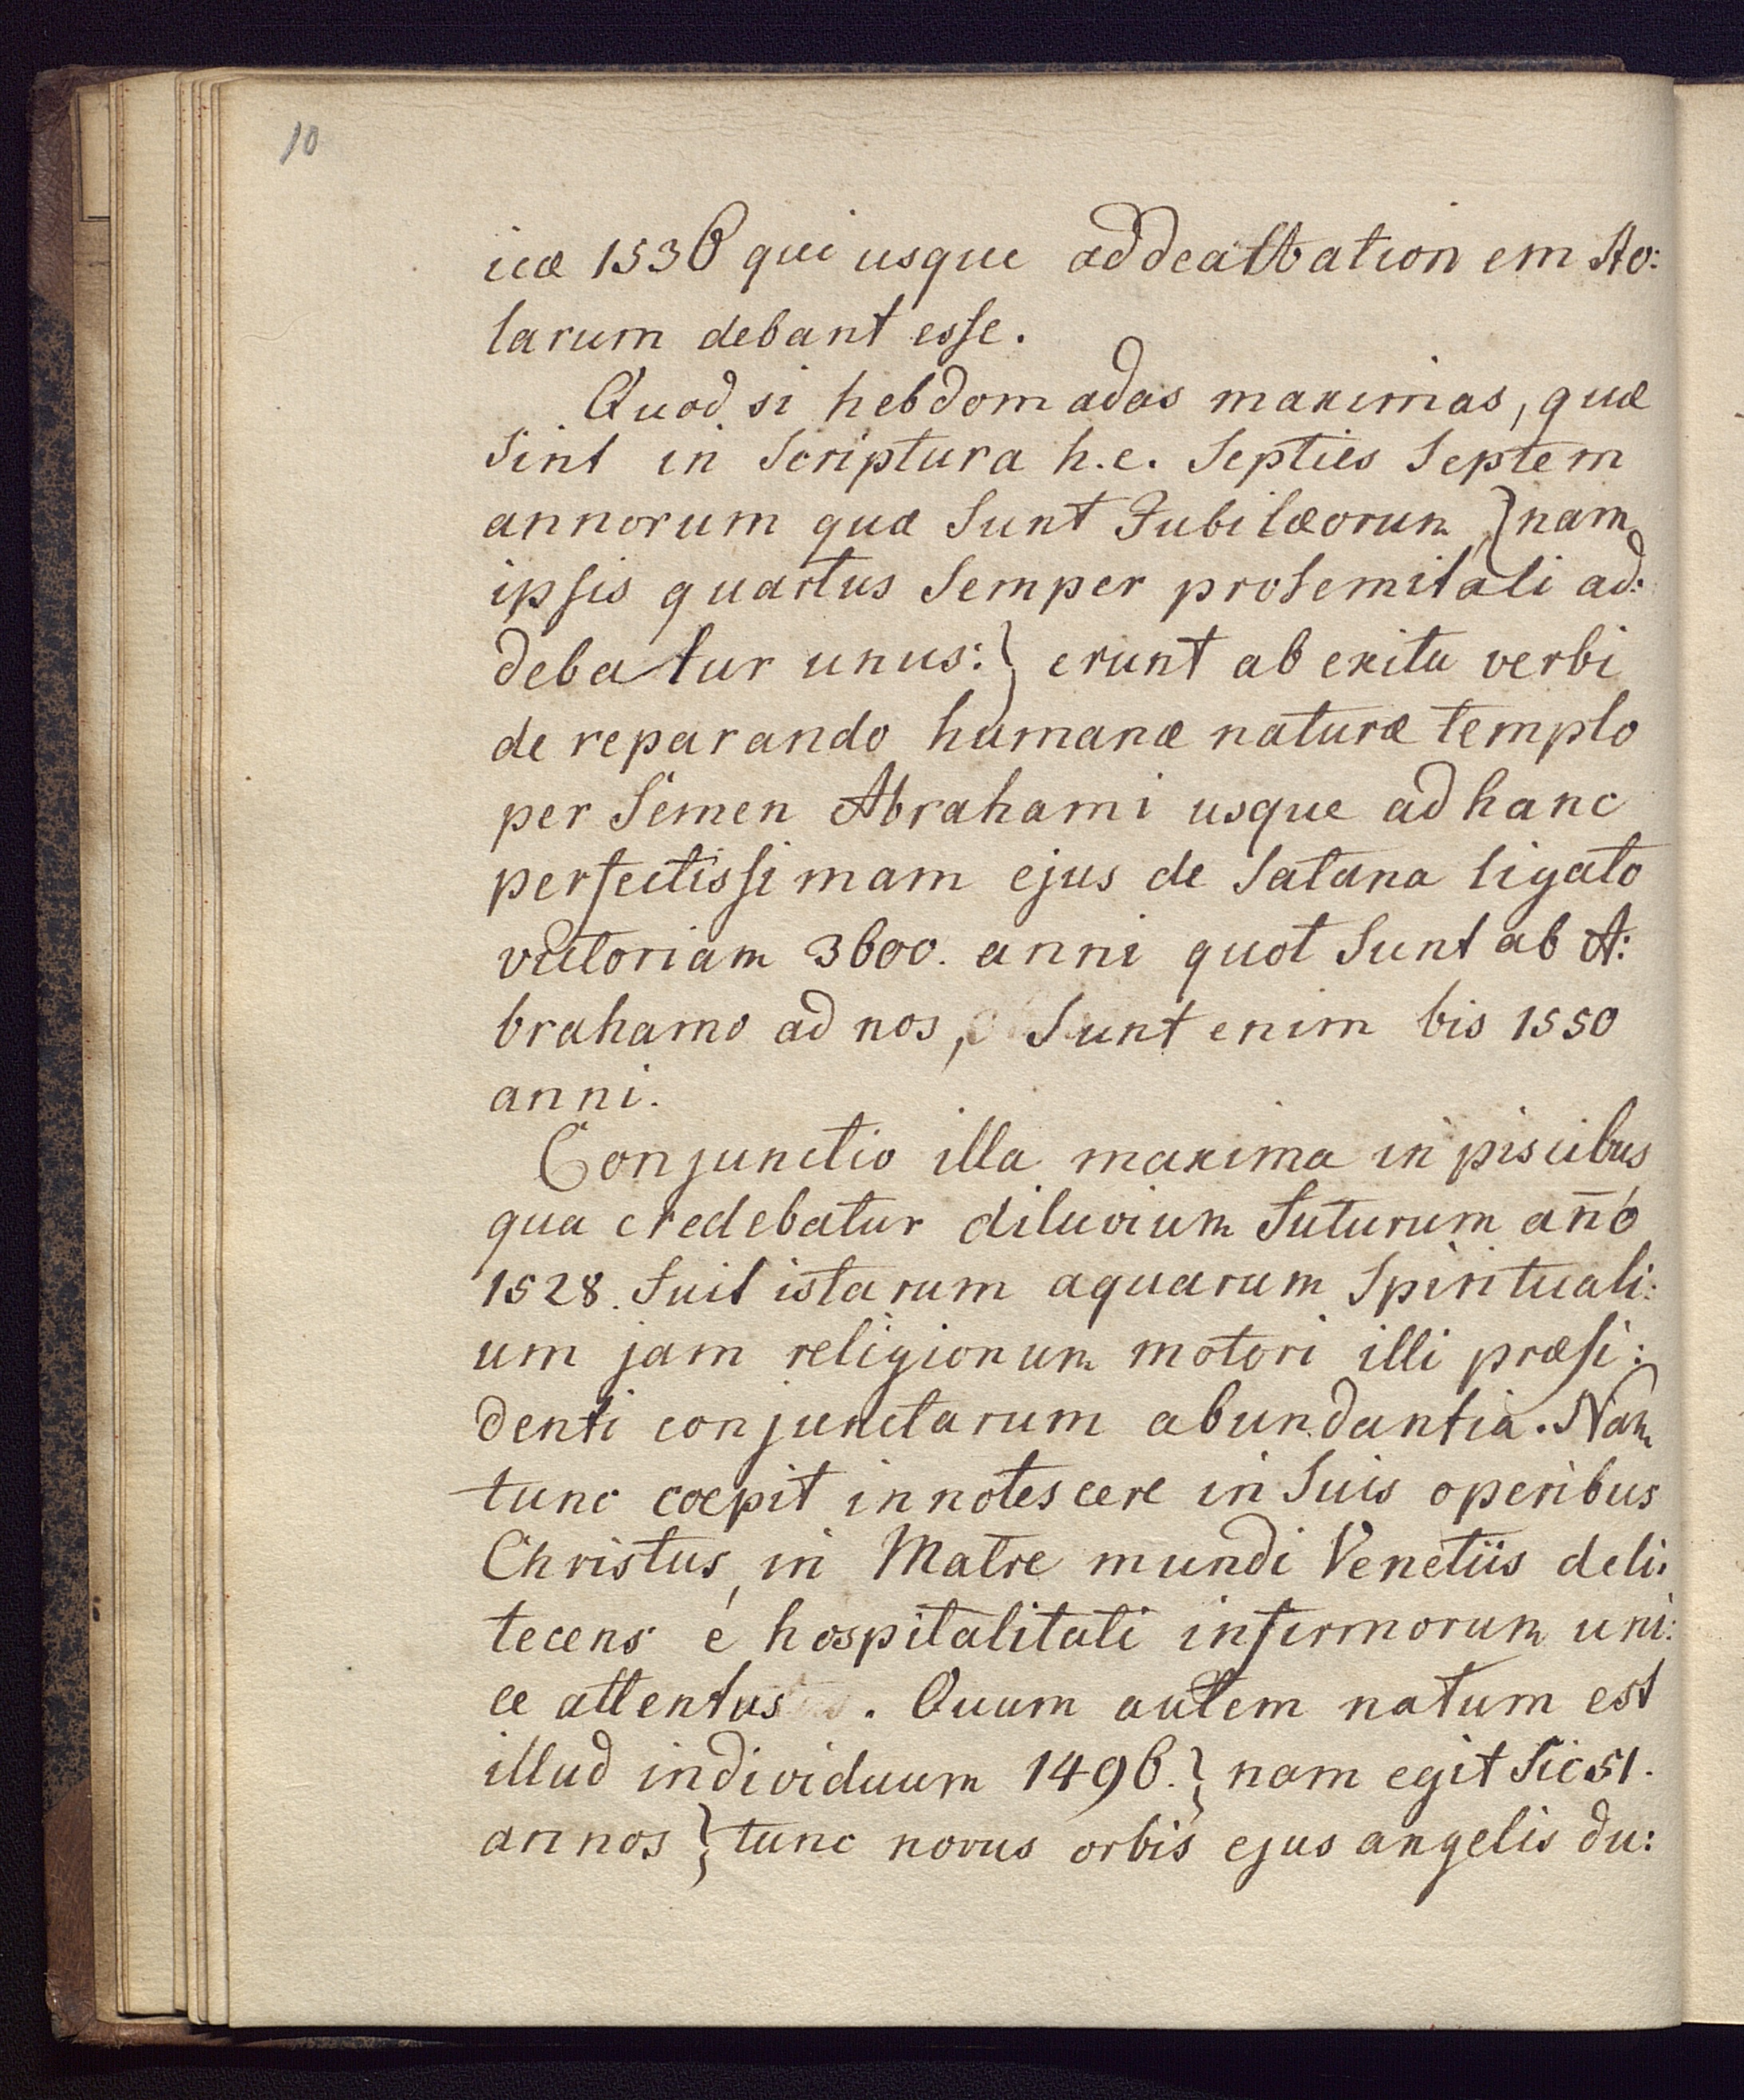 10
icæ 1536 qui usque ad dealbation em sto:
larum debant esse.
Quod si hebdomadas maximas, quæ
sint in Scriptura h.e. Septies Septem
annorum quæ sunt Jubilæorum } nam
ipsis quartus semper prosemitali ad:
debatur unus: } erunt ab exitu verbi
de reparando humanæ naturæ templo
per Semen Abrahami usque ad hanc
perfectissimam ejus de Satana ligato
victoriam 3600. anni quot sunt ab A:
brahamo ad nos, sunt enim bis 1550
anni.
Conjunctio illa maxima in piscibus
qua credebatur diluvium futurum an̄o
1528. fuit istarum aquarum Spirituali:
um jam religionum motori illi præsi:
denti conjunctarum abundantia. Nam
tunc coepit innotescere in suis operibus
Christus, in Matre mundi Venetiis deli:
tecens é hospitalitati infirmorum uni:
ce attentus. Quum autem natum est
illud individuum 1496. } nam egit sic 51.
annos } tunc novus orbis ejus angelis du: